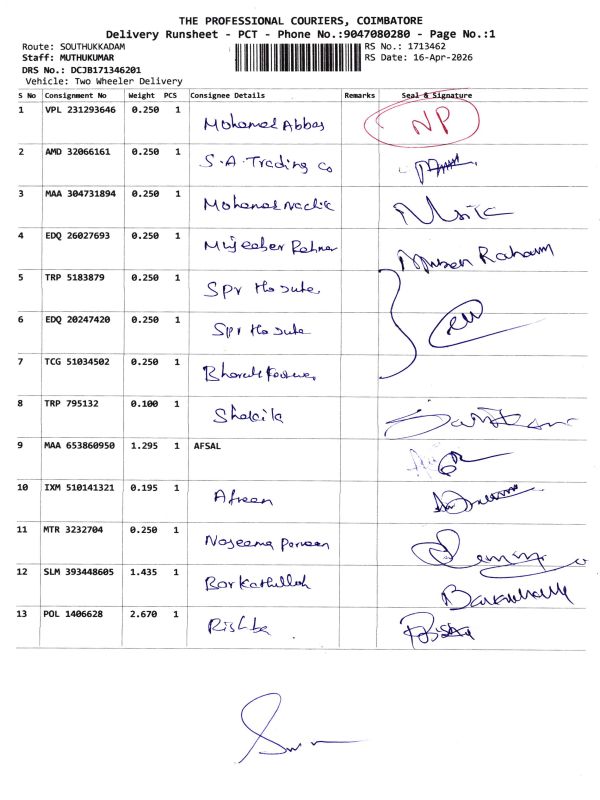 THE PROFESSIONAL COURIERS, COIMBATORE
Delivery Runsheet - PCT - Phone No.:9047080280 - Page No.:1
Route: SOUTHUKKADAM RS No.: 1713462
Staff: MUTHUKUMAR RS Date: 16-Apr-2026
DRS No.: DCJB171346201
Vehicle: Two Wheeler Delivery
S No Consignment No Weight PCS Consignee Details Remarks Seal & Signature
1 VPL 231293646 0.250 1 Mohamed Abbas NP
2 AMD 32066161 0.250 1 S.A. Trading Co
3 MAA 304731894 0.250 1 Mohamed
4 EDQ 26027693 0.250 1 Rahum
5 TRP 5183879 0.250 1 Spr
6 EDQ 20247420 0.250 1 Spr
7 TCG 51034502 0.250 1
8 TRP 795132 0.100 1 Shakila
9 MAA 653860950 1.295 1 AFSAL
10 IXM 510141321 0.195 1 Afreen
11 MTR 3232704 0.250 1 Naseema Parveen
12 SLM 393448605 1.435 1 Barkathullah
13 POL 1406628 2.670 1